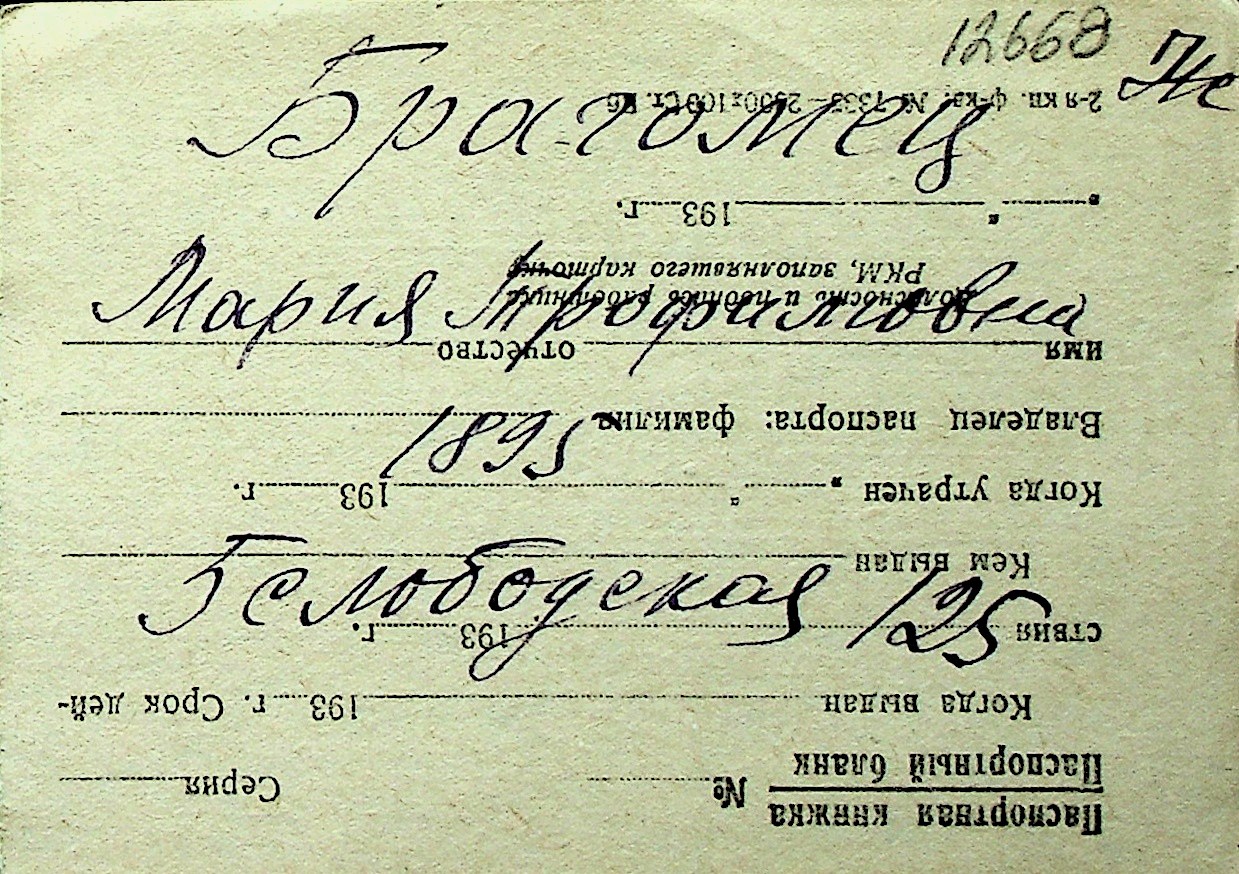 12668
Брагомец
Мария Трофимовна
1895
Б Слободская 125
Паспортная книжка № Серия
Паспортный бланк
Когда выдан 193 г. Срок дей-
ствия 193 г.
Кем выдан
Когда утрачен „ “ 193 г.
Владелец паспорта: фамилия
имя отчество
Должность и подпись работника
РКМ, заполнявшего карточку
„ “ 193 г.
2-я кн. ф-ка. №